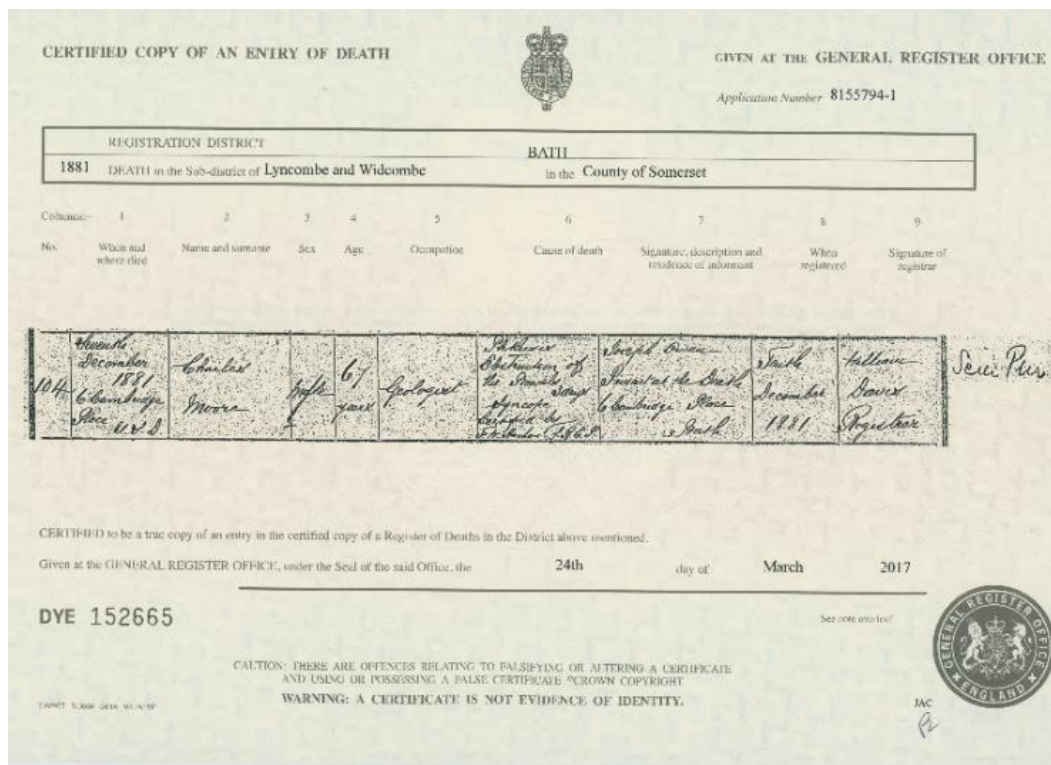 CERTIFIED COPY OF AN ENTRY OF DEATH
GIVEN AT THE GENERAL REGISTER OFFICE
Application Number 8155794-1
REGISTRATION DISTRICT BATH
1881 DEATH in the Sub-district of Lyncombe and Widcombe in the County of Somerset
Columns:- 1 2 3 4 5 6 7 8 9
No. When and where died Name and surname Sex Age Occupation Cause of death Signature, description and residence of informant When registered Signature of registrar
104
Seventh
December
1881
6 Cambridge
Place U.S.D.
Charles
Moore
Male
67
years
Geologist
Obstruction of
the Bowels
Syncope
Certified by
Joseph
Present at the Death
6 Cambridge Place
Bath
Tenth
December
1881
William
Davis
Registrar
CERTIFIED to be a true copy of an entry in the certified copy of a Register of Deaths in the District above mentioned.
Given at the GENERAL REGISTER OFFICE, under the Seal of the said Office, the 24th day of March 2017
DYE 152665
See note overleaf
CAUTION: THERE ARE OFFENCES RELATING TO FALSIFYING OR ALTERING A CERTIFICATE
AND USING OR POSSESSING A FALSE CERTIFICATE ©CROWN COPYRIGHT
WARNING: A CERTIFICATE IS NOT EVIDENCE OF IDENTITY.
GENERAL REGISTER OFFICE
ENGLAND
JAC